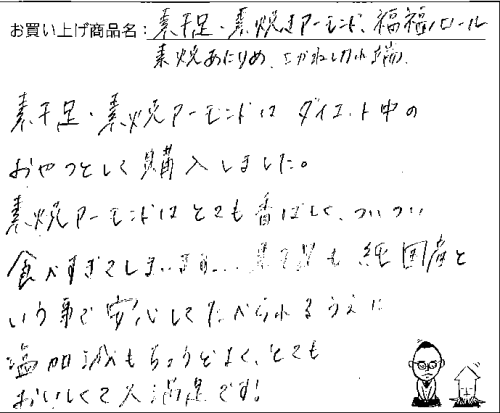 お買い上げ商品名：素干足・素焼きアーモンド、福福ロール
素焼あたりめ、こがね切れ端
素干足・素焼アーモンドは ダイエット中の
おやつとして購入しました。
素焼アーモンドはとても香ばしく、ついつい
食べすぎてしまいます… 素干足も純国産と
いう事で安心してたべられるうえに
塩加減もちょうどよく、とても
おいしくて大満足です!